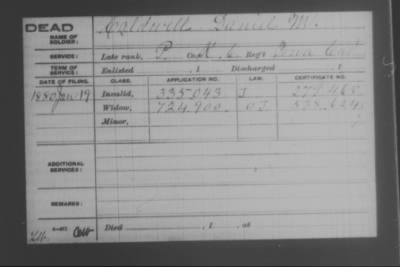 DEAD
NAME OF SOLDIER: Caldwell Daniel M.
SERVICE: Late rank, P. Co. K, 6 Reg't Iowa Cav
TERM OF SERVICE: Enlisted , 1 Discharged , 1
DATE OF FILING. CLASS. APPLICATION NO. LAW. CERTIFICATE NO.
1880 Jan. 19 Invalid, 335.043 J 279.468
Widow, 724.900 O.J. 538.624
Minor,
ADDITIONAL SERVICES:
REMARKS:
Died , 1 , at